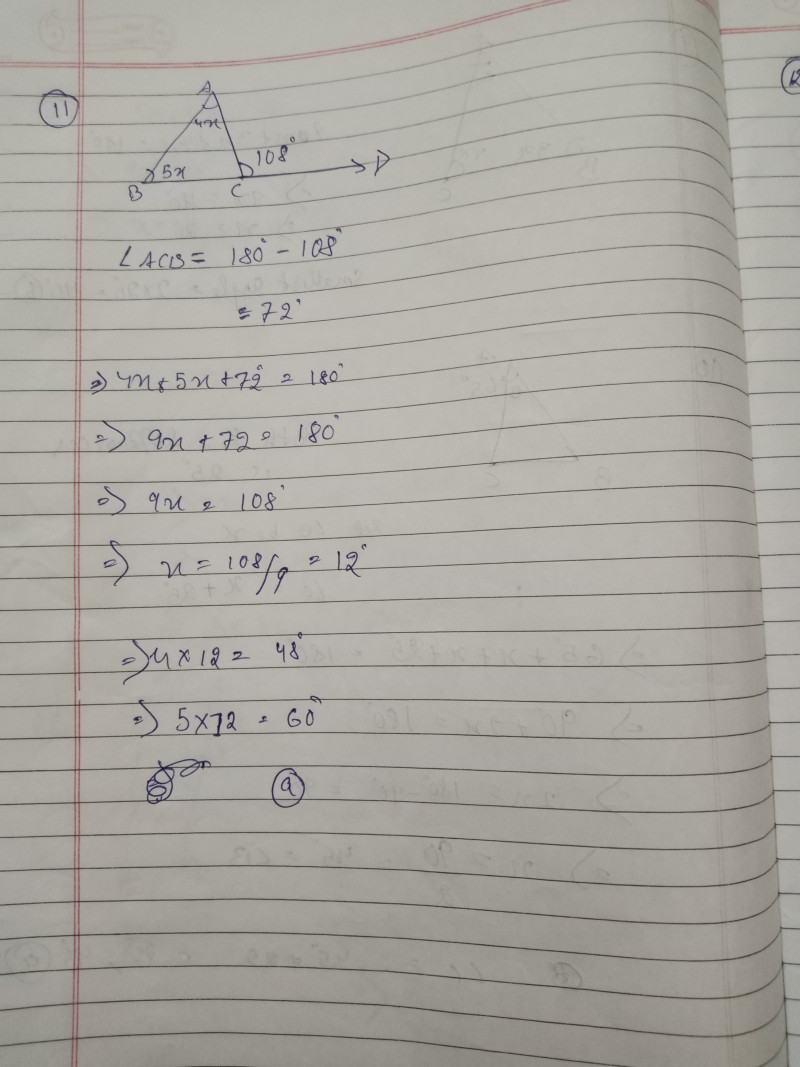 11
A
4x
108°
B 5x C D
∠ACB = 180° - 108°
= 72°
⇒ 4x + 5x + 72° = 180°
⇒ 9x + 72 = 180°
⇒ 9x = 108°
⇒ x = 108/9 = 12°
⇒ 4 × 12 = 48°
⇒ 5 × 12 = 60°
a